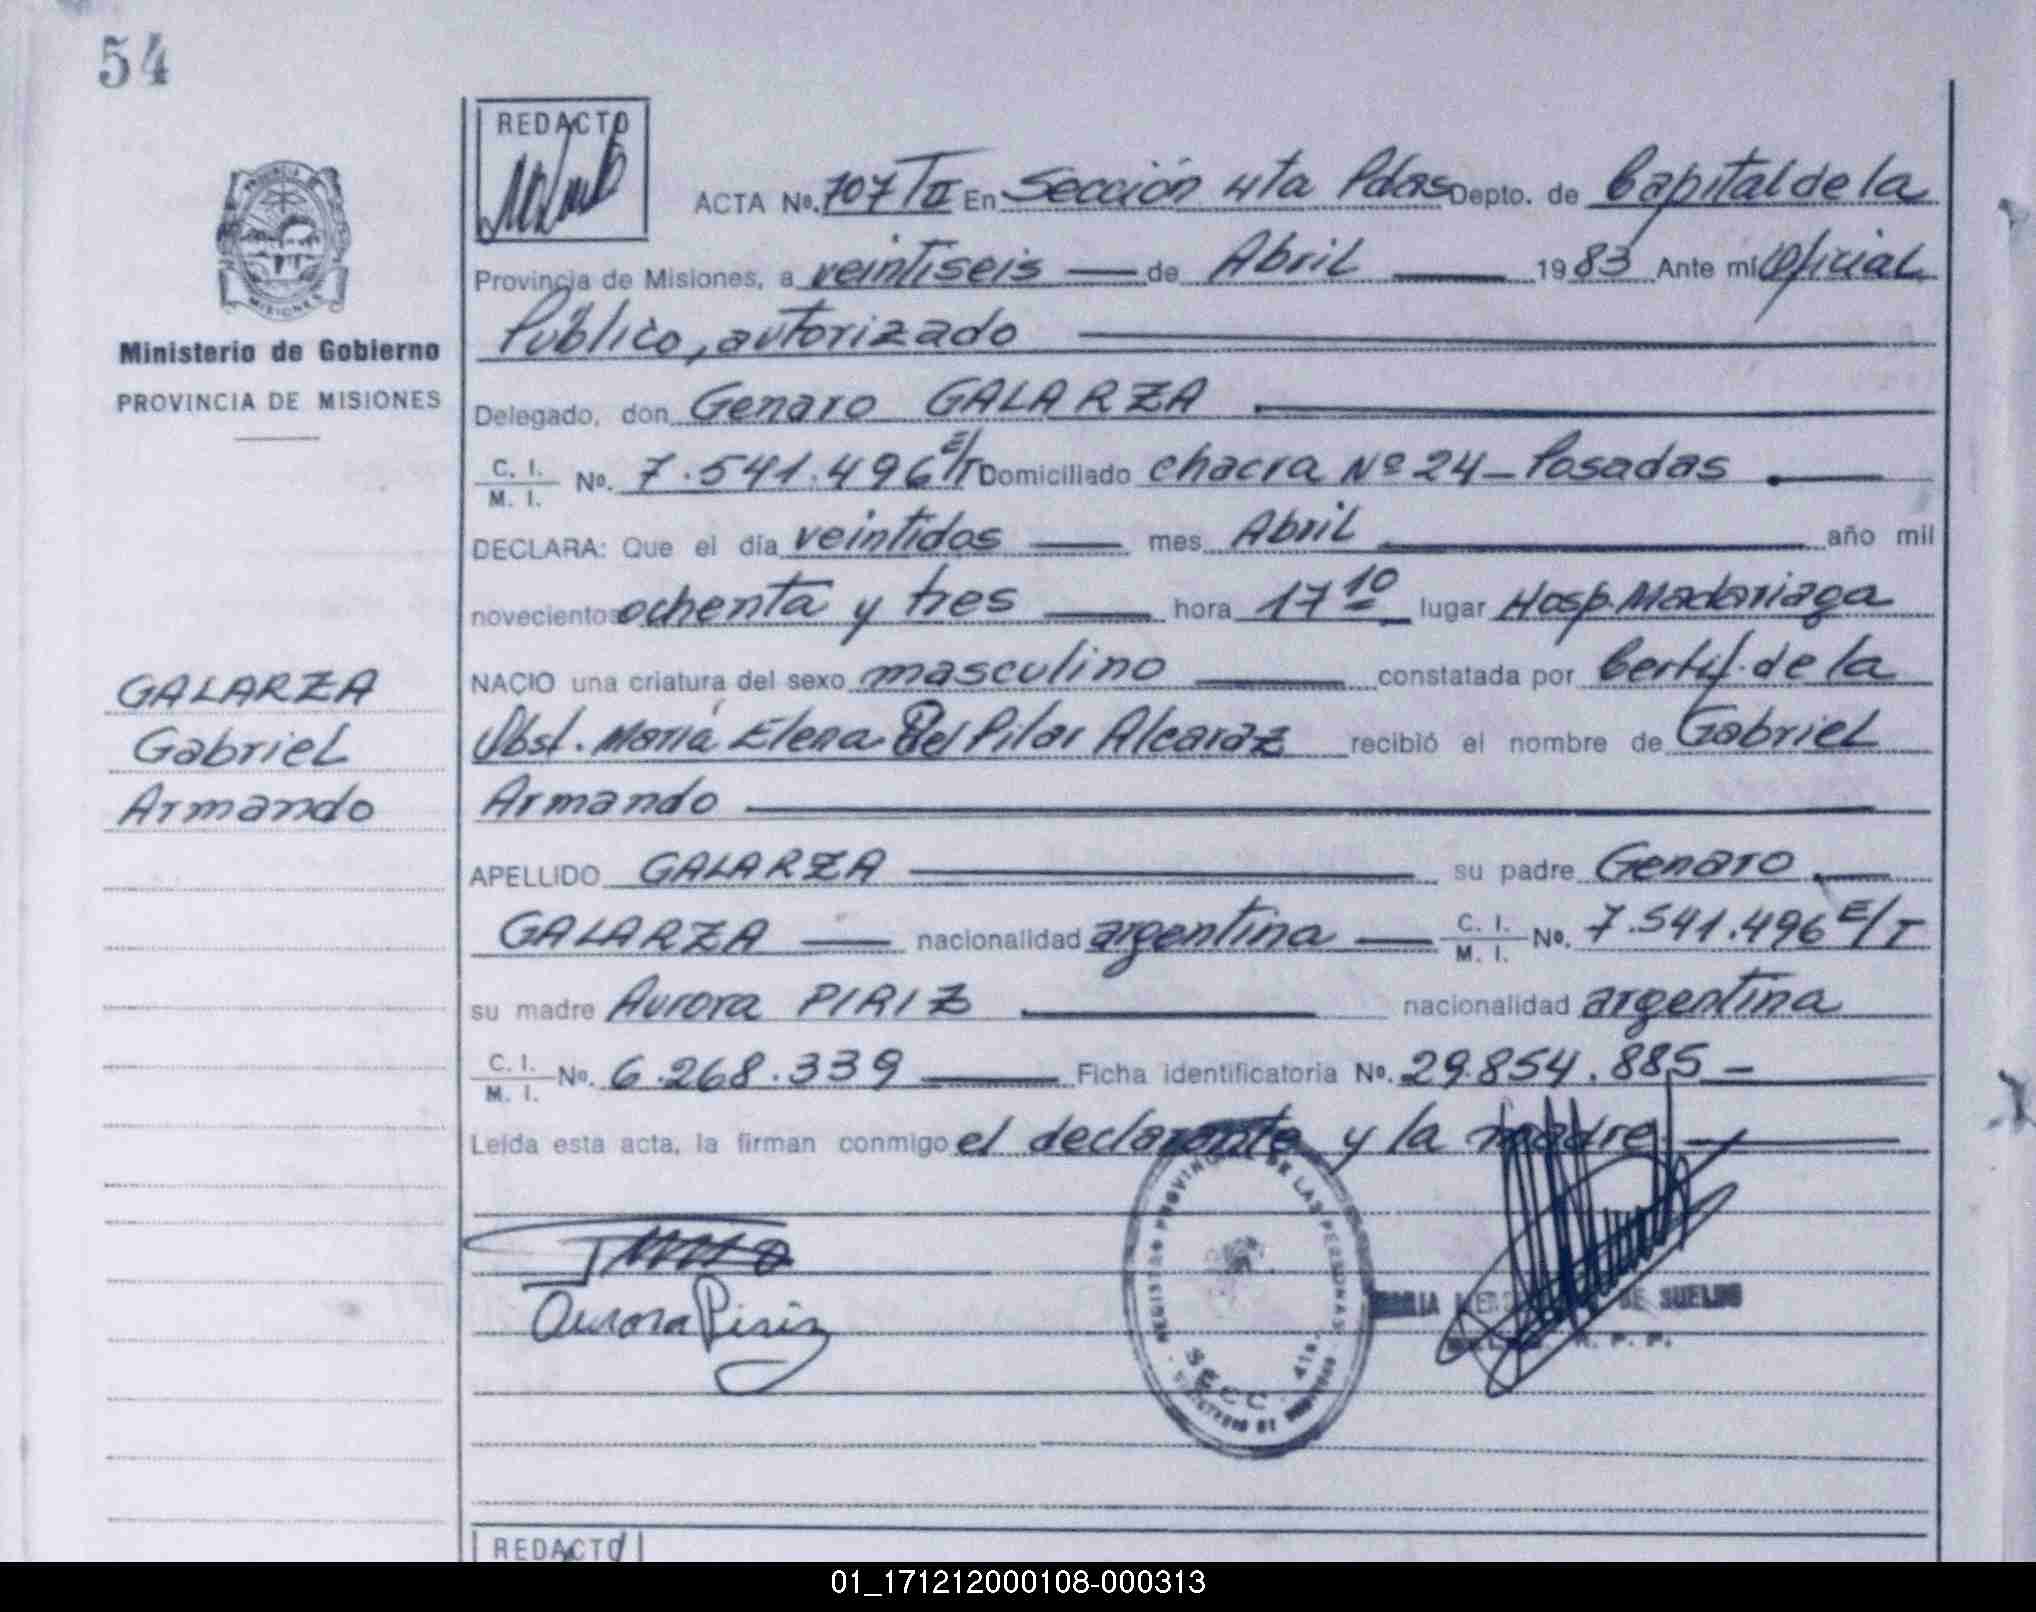 54
REDACTO
ACTA Nº. 707 TII En Sección 4ta Pdas Depto. de Capital de la
Provincia de Misiones, a veintiseis de Abril 1983 Ante mí Oficial
Público, autorizado
Ministerio de Gobierno
PROVINCIA DE MISIONES
Delegado, don Genaro GALARZA
C. I. / M. I. Nº. 7.541.496 E/T Domiciliado chacra Nº 24 - Posadas
DECLARA: Que el día veintidos mes Abril año mil
novecientos ochenta y tres hora 17 10 lugar Hosp. Madariaga
NACIO una criatura del sexo masculino constatada por Certif. de la
Obst. María Elena Del Pilar Alcaraz recibió el nombre de Gabriel
Armando
GALARZA
Gabriel
Armando
APELLIDO GALARZA su padre Genaro
GALARZA nacionalidad argentina C. I. / M. I. Nº. 7.541.496 E/T
su madre Aurora PIRIZ nacionalidad argentina
C. I. / M. I. Nº. 6.268.339 Ficha identificatoria Nº. 29.854.885 -
Leída esta acta, la firman conmigo el declarante y la madre
Aurora Piriz
REGISTRO PROVINCIAL DE LAS PERSONAS
SECC. 4ta.
DE SUELOS
R. P. P.
REDACTO
01_171212000108-000313